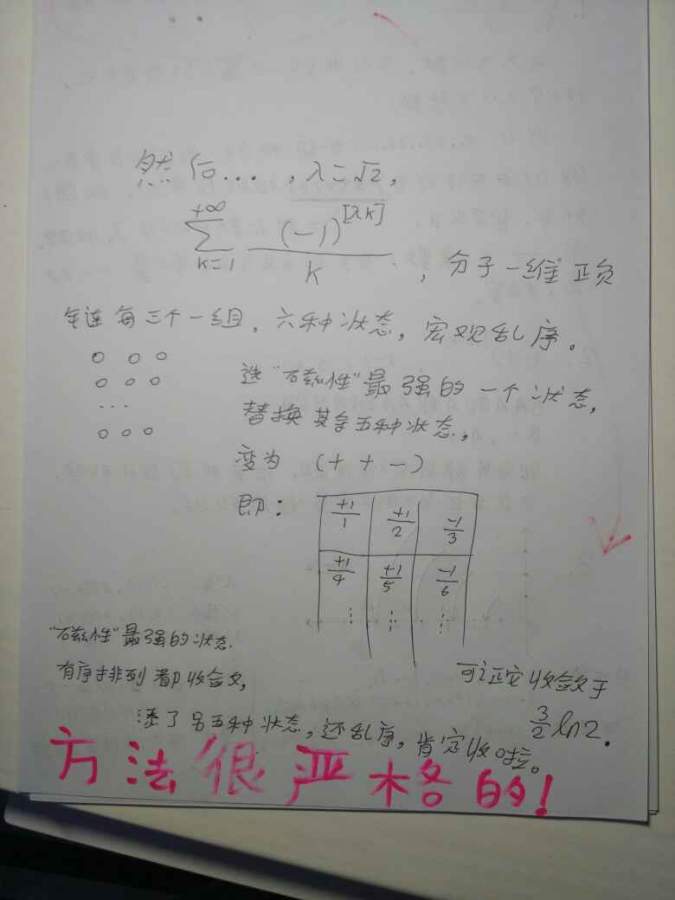 然后... , λ=√2,
+∞
∑ (-1)^[λk] / k , 分子一维正负
k=1
每三个一组, 六种状态, 宏观乱序。
○ ○ ○
○ ○ ○
...
○ ○ ○
选"磁性"最强的一个状态,
替换其余五种状态,
变为 (+ + -)
即:
+1/1 +1/2 -1/3
+1/4 +1/5 -1/6
⋮ ⋮ ⋮
"磁性"最强的状态
有序排列都收敛,
可证它收敛于
3/2 ln2.
还乱序, 肯定收啦。
方法很严格的!